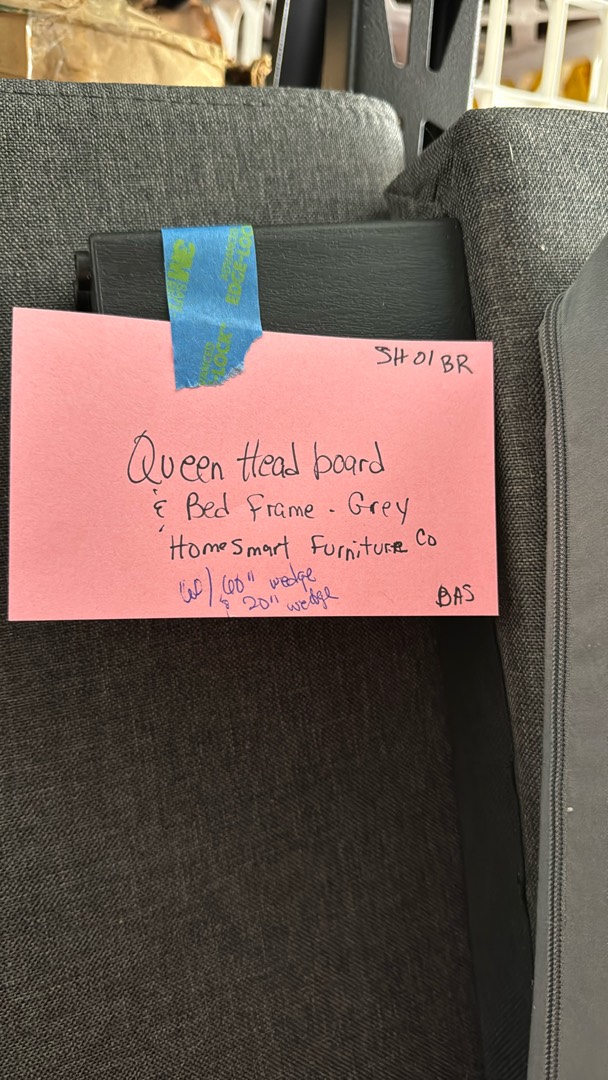 3M
EDGE-LOC
LOCK
SH01BR
Queen Head board
& Bed Frame - Grey
HomeSmart Furniture Co
w/ 60" wedge
& 20" wedge
BAS